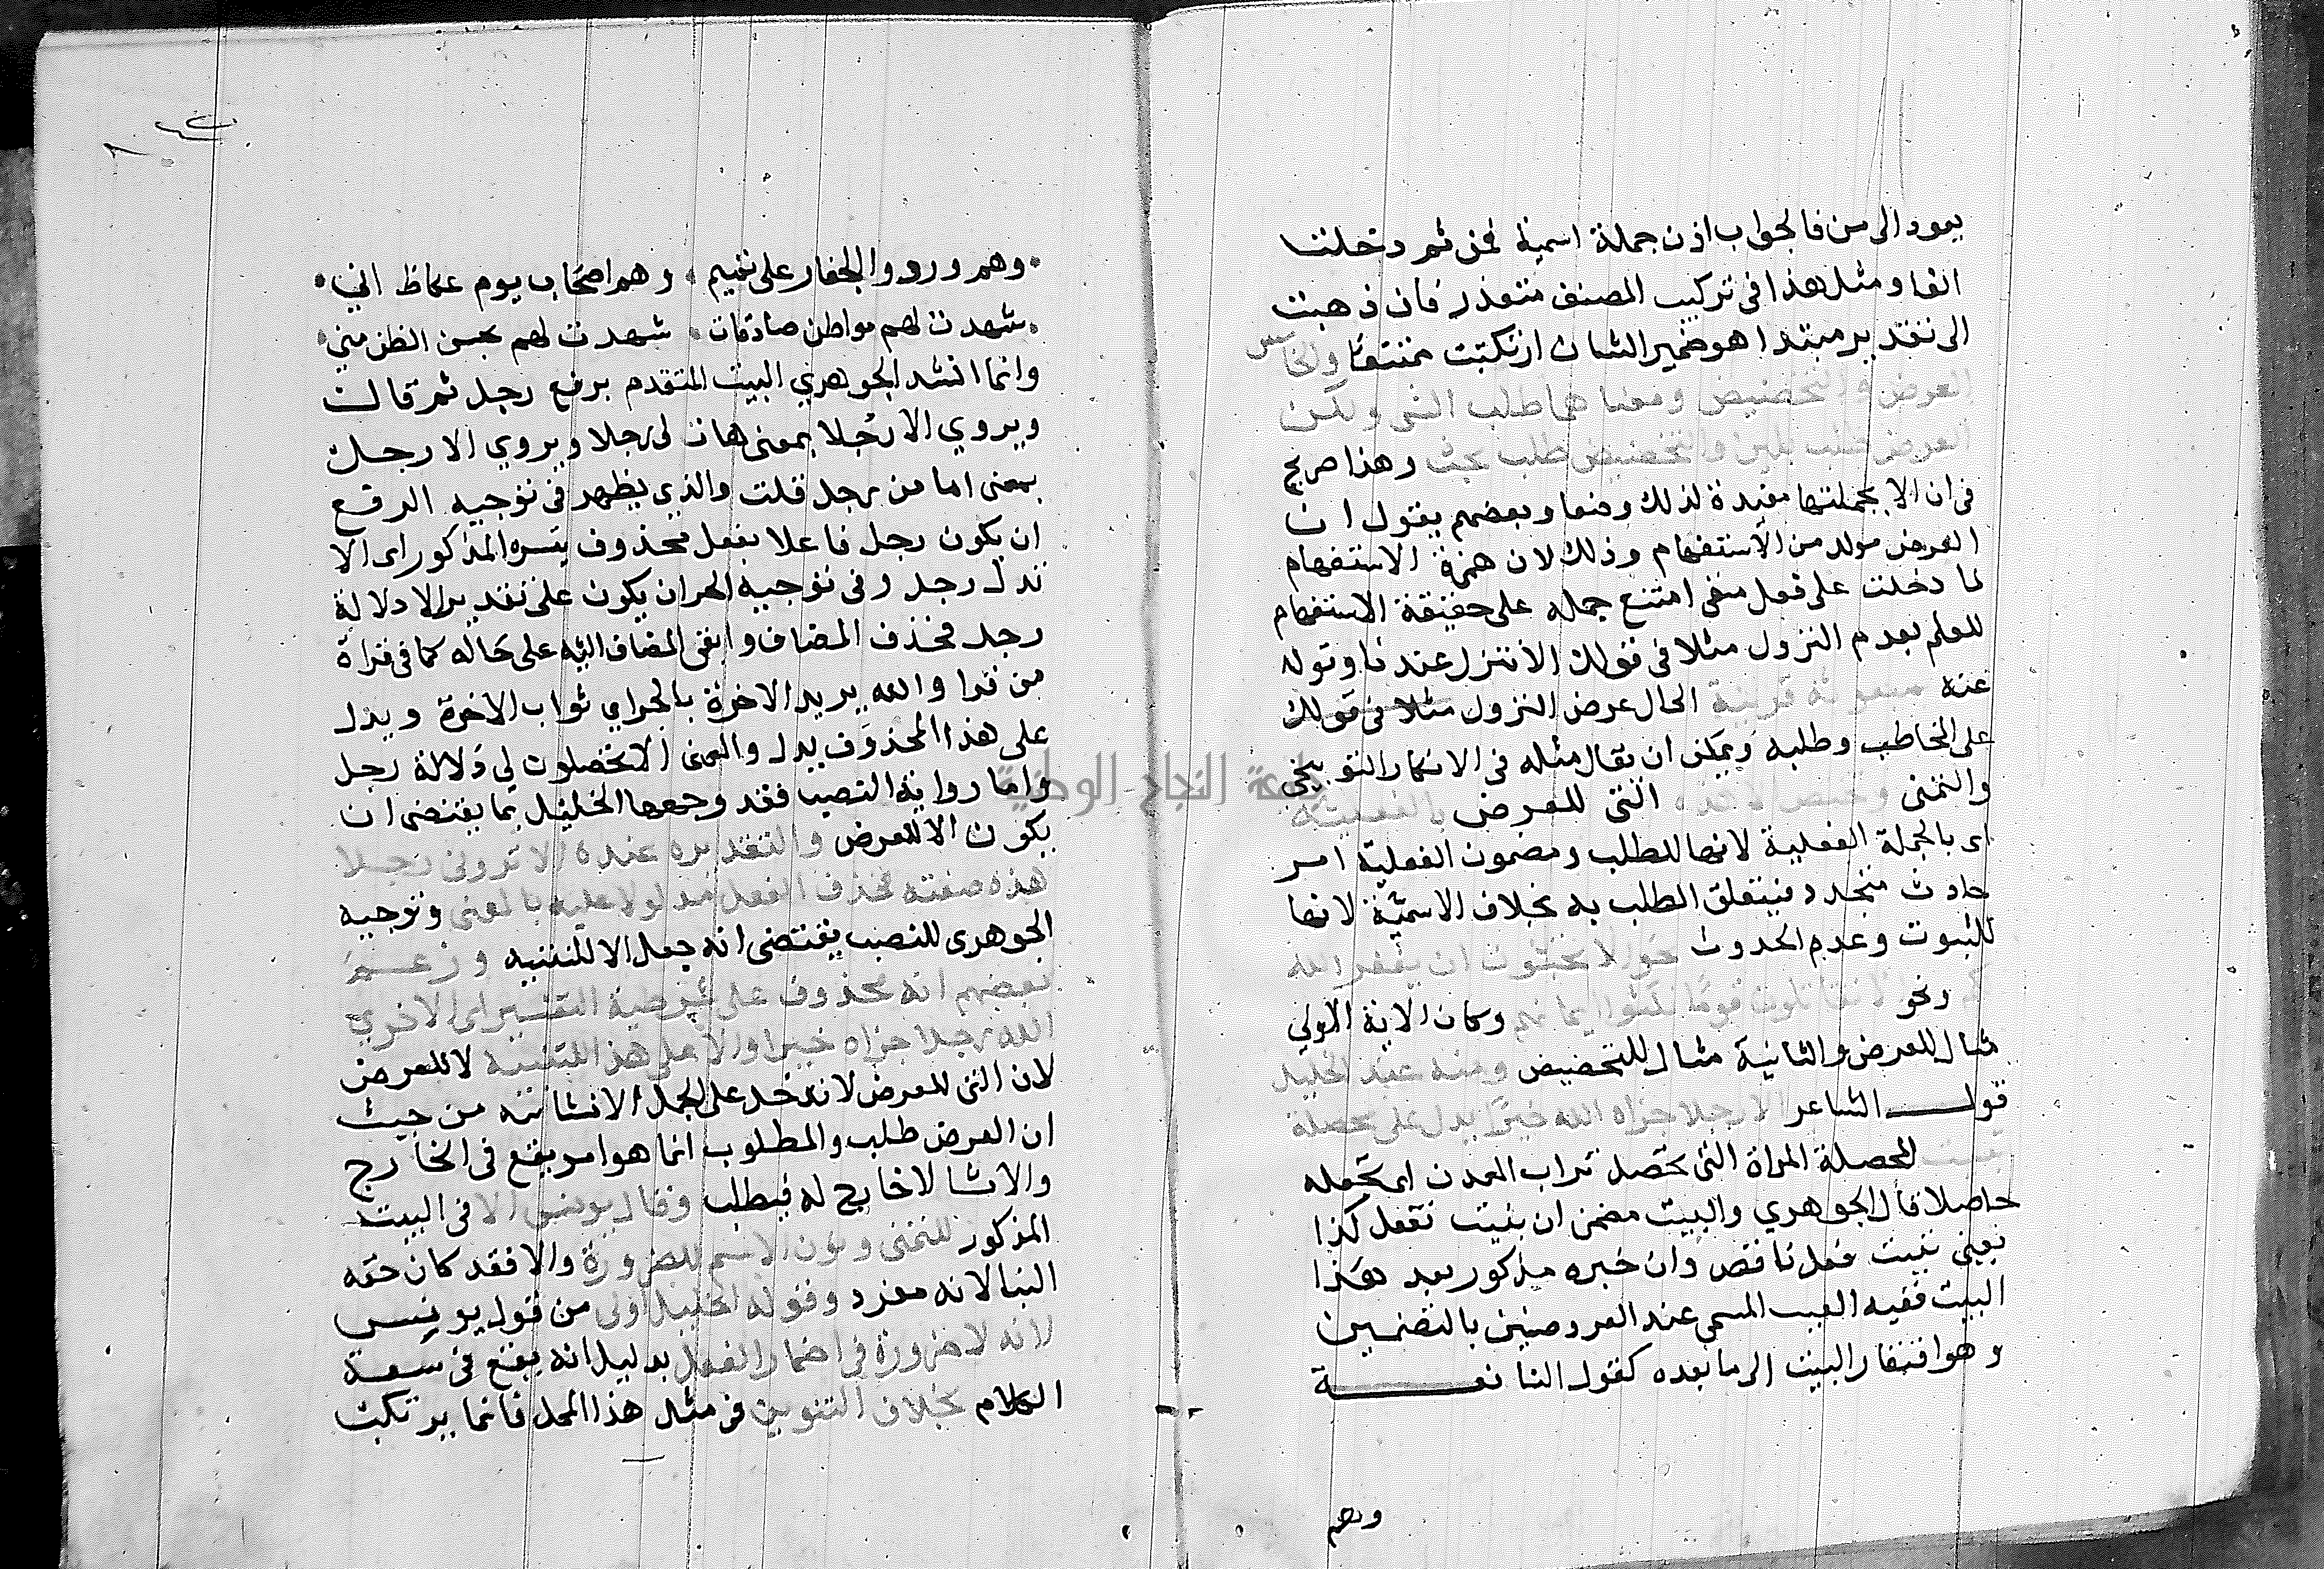 يعود الى من فالجواب اذن جملة اسمية نحن ثم دخلت
الفا ومثل هذا في تركيب المصنف متعذر فان ذهبت
الى تقدير مبتدا هو ضمير الشان ارتكبت ممتنعا والخامس
العرض والتحضيض ومعناهما طلب الشى ولكن
العرض طلب بلين والتحضيض طلب بحث وهذا صريح
فى ان الا بجملتها مفيدة لذلك وضعا وبعضهم يقول ان
العرض مولد من الاستفهام وذلك لان همزة الاستفهام
لما دخلت على فعل منفى امتنع حمله على حقيقة الاستفهام
للعلم بعدم النزول مثلا فى قولك الا تنزل عندنا وتوله
عنه بمعونة قرينة الحال عرض النزول مثلا فى قولك
على المخاطب وطلبه ويمكن ان يقال مثله فى الانكار التوبيخى
والتمنى وتختص الا هذه التى للعرض بالفعلية
اى بالجملة الفعلية لانها للطلب ومضمون الفعلية امر
حادث متجدد فيتعلق الطلب به بخلاف الاسمية لانها
للثبوت وعدم الحدوث نحو الا تحبون ان يغفر الله
لكم ونحو الا تقاتلون قوما نكثوا ايمانهم وكان الاية الاولى
مثال للعرض والثانية مثال للتحضيض ومنه عند الخليل
قول الشاعر الا رجلا جزاه الله خيرا يدل على محصلة
تبيت المحصلة المراة التى تحصل تراب المعدن اى تجعله
حاصلا قال الجوهري والبيت مضمن ان بنيت تفعل كذا
يعنى تبيت فعل ناقص وان خبره مذكور بعد هذا
البيت ففيه العيب المسمى عند العروضيين بالتضمين
وهو افتقار البيت الى ما بعده كقول النابغة
وهم
وهم وردوا الجفار على تميم، وهم اصحاب يوم عكاظ اني
شهدت لهم مواطن صادقات، شهدت لهم بحسن الظن مني
وانما انشد الجوهري البيت المتقدم برفع رجل ثم قال
ويروي الا رجلا بمعنى هات لى رجلا ويروي الا رجل
بمعنى اما من رجل قلت والذي يظهر فى توجيه الرفع
ان يكون رجل فاعلا بفعل محذوف يفسره المذكور اى الا
يدل رجل وفى توجيه الجر ان يكون على تقدير الا دلالة
رجل فحذف المضاف وابقى المضاف اليه على حاله كما فى قراة
من قرا والله يريد الاخرة بالجر اي ثواب الاخرة ويدل
على هذا المحذوف يدل والمعنى الا تحصلون لى دلالة رجل
واما رواية النصب فقد وجهها الخليل بما يقتضى ان
يكون الا للعرض والتقديره عنده الا تروني رجلا
هذه صفته فحذف الفعل مدلولا عليه بالمعنى وتوجيه
الجوهرى للنصب يقتضى انه جعل الا للتنبيه وزعم
بعضهم انه محذوف على شرطية التفسير اى الا جزى
الله رجلا جزاه خيرا والا على هذا للتنبيه لا للعرض
لان التى للعرض لا تدخل على الجمل الانشائية من حيث
ان العرض طلب والمطلوب انما هو امر يقع فى الخارج
والانشا لا خارج له فيطلب وقال يونس الا فى البيت
المذكور للتمنى ونون الاسم للضرورة والا فقد كان حقه
البنا لانه مفرد وقوله الخليل اولى من قول يونس
لانه لا ضرورة فى اضمار الفعل بدليل انه يقع فى سعة
الكلام بخلاف التنوين فى مثل هذا المحل فانما يرتكب
جامعة النجاح الوطنية